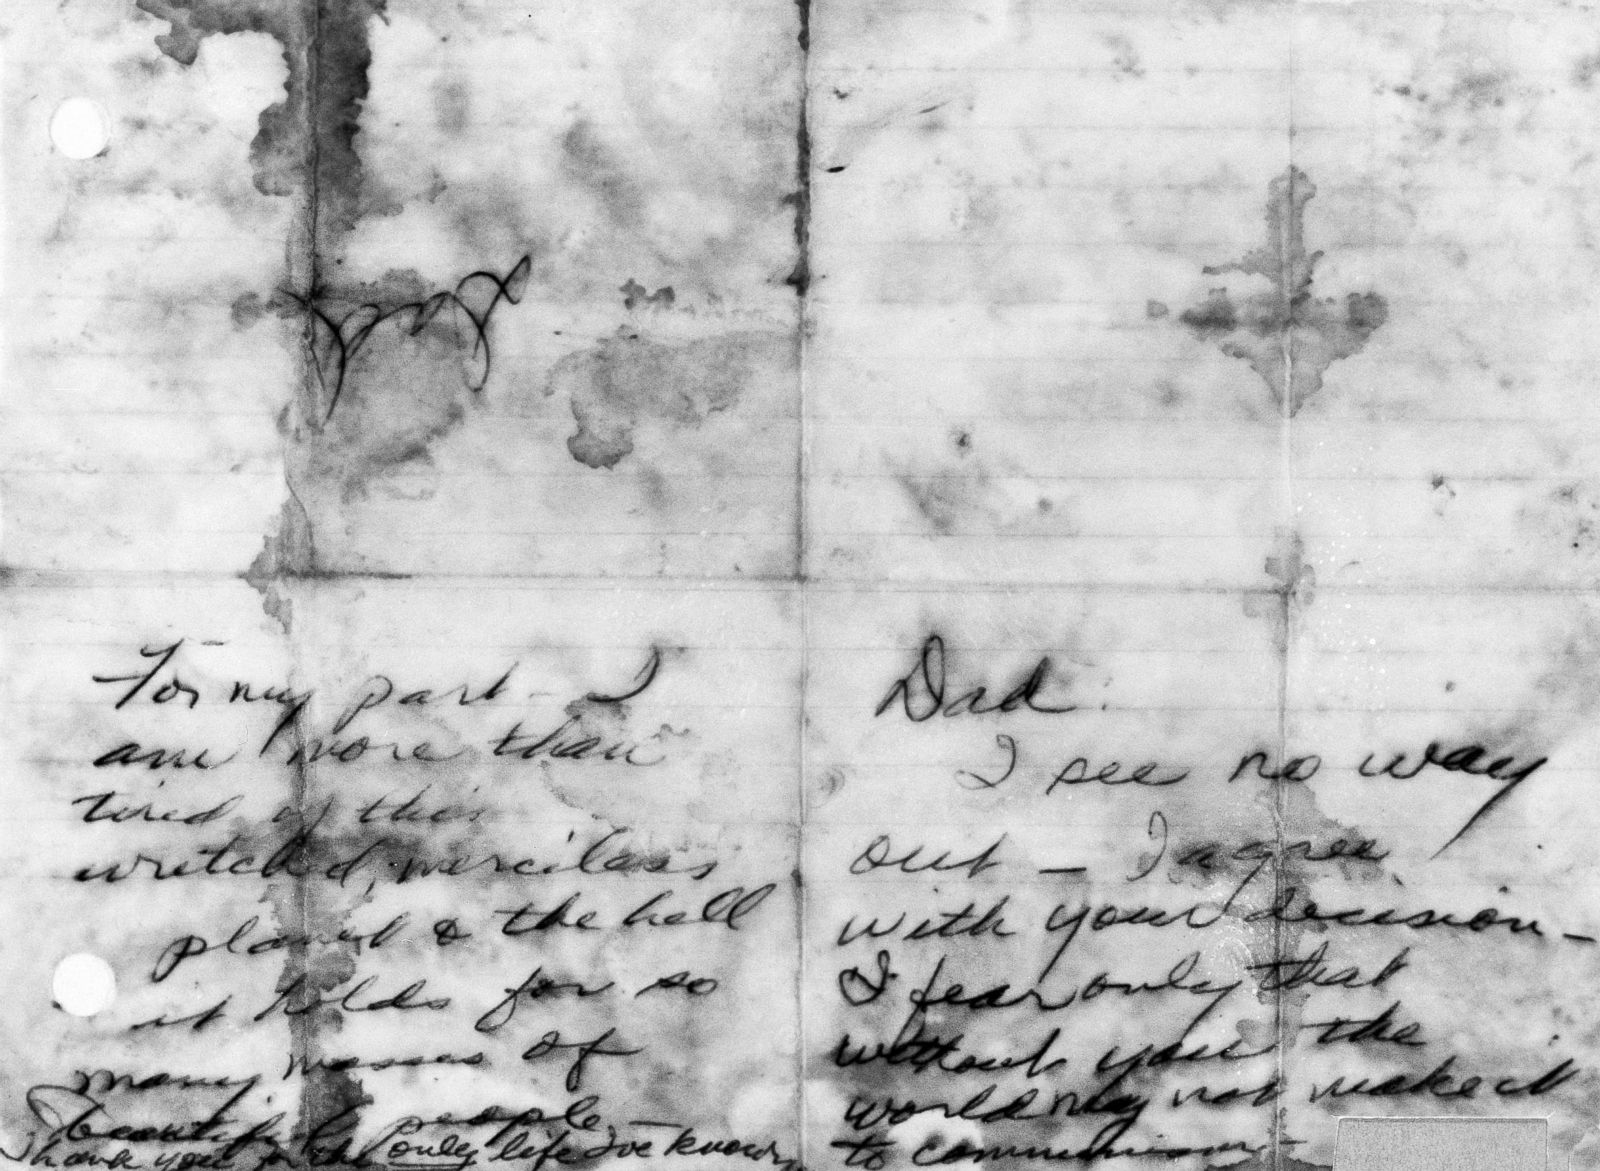 Dad:
I see no way
out – I agree
with your decision –
I fear only that
without you the
world may not make it
to communism –
For my part – I
am more than
tired of this
wretched, merciless
planet & the hell
it holds for so
many masses of
beautiful people –
thank you for the only life I've known